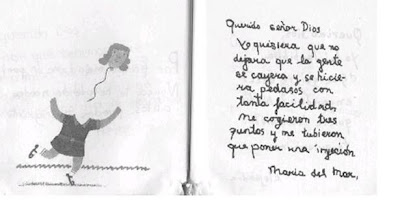 Querido señor Dios
Yo quisiera que no
dejara que la gente
se cayera y se hicie-
ra pedasos con
tanta facilidad,
me cogieron tres
puntos y me tubieron
que poner una inyeción
Maria del Mar,